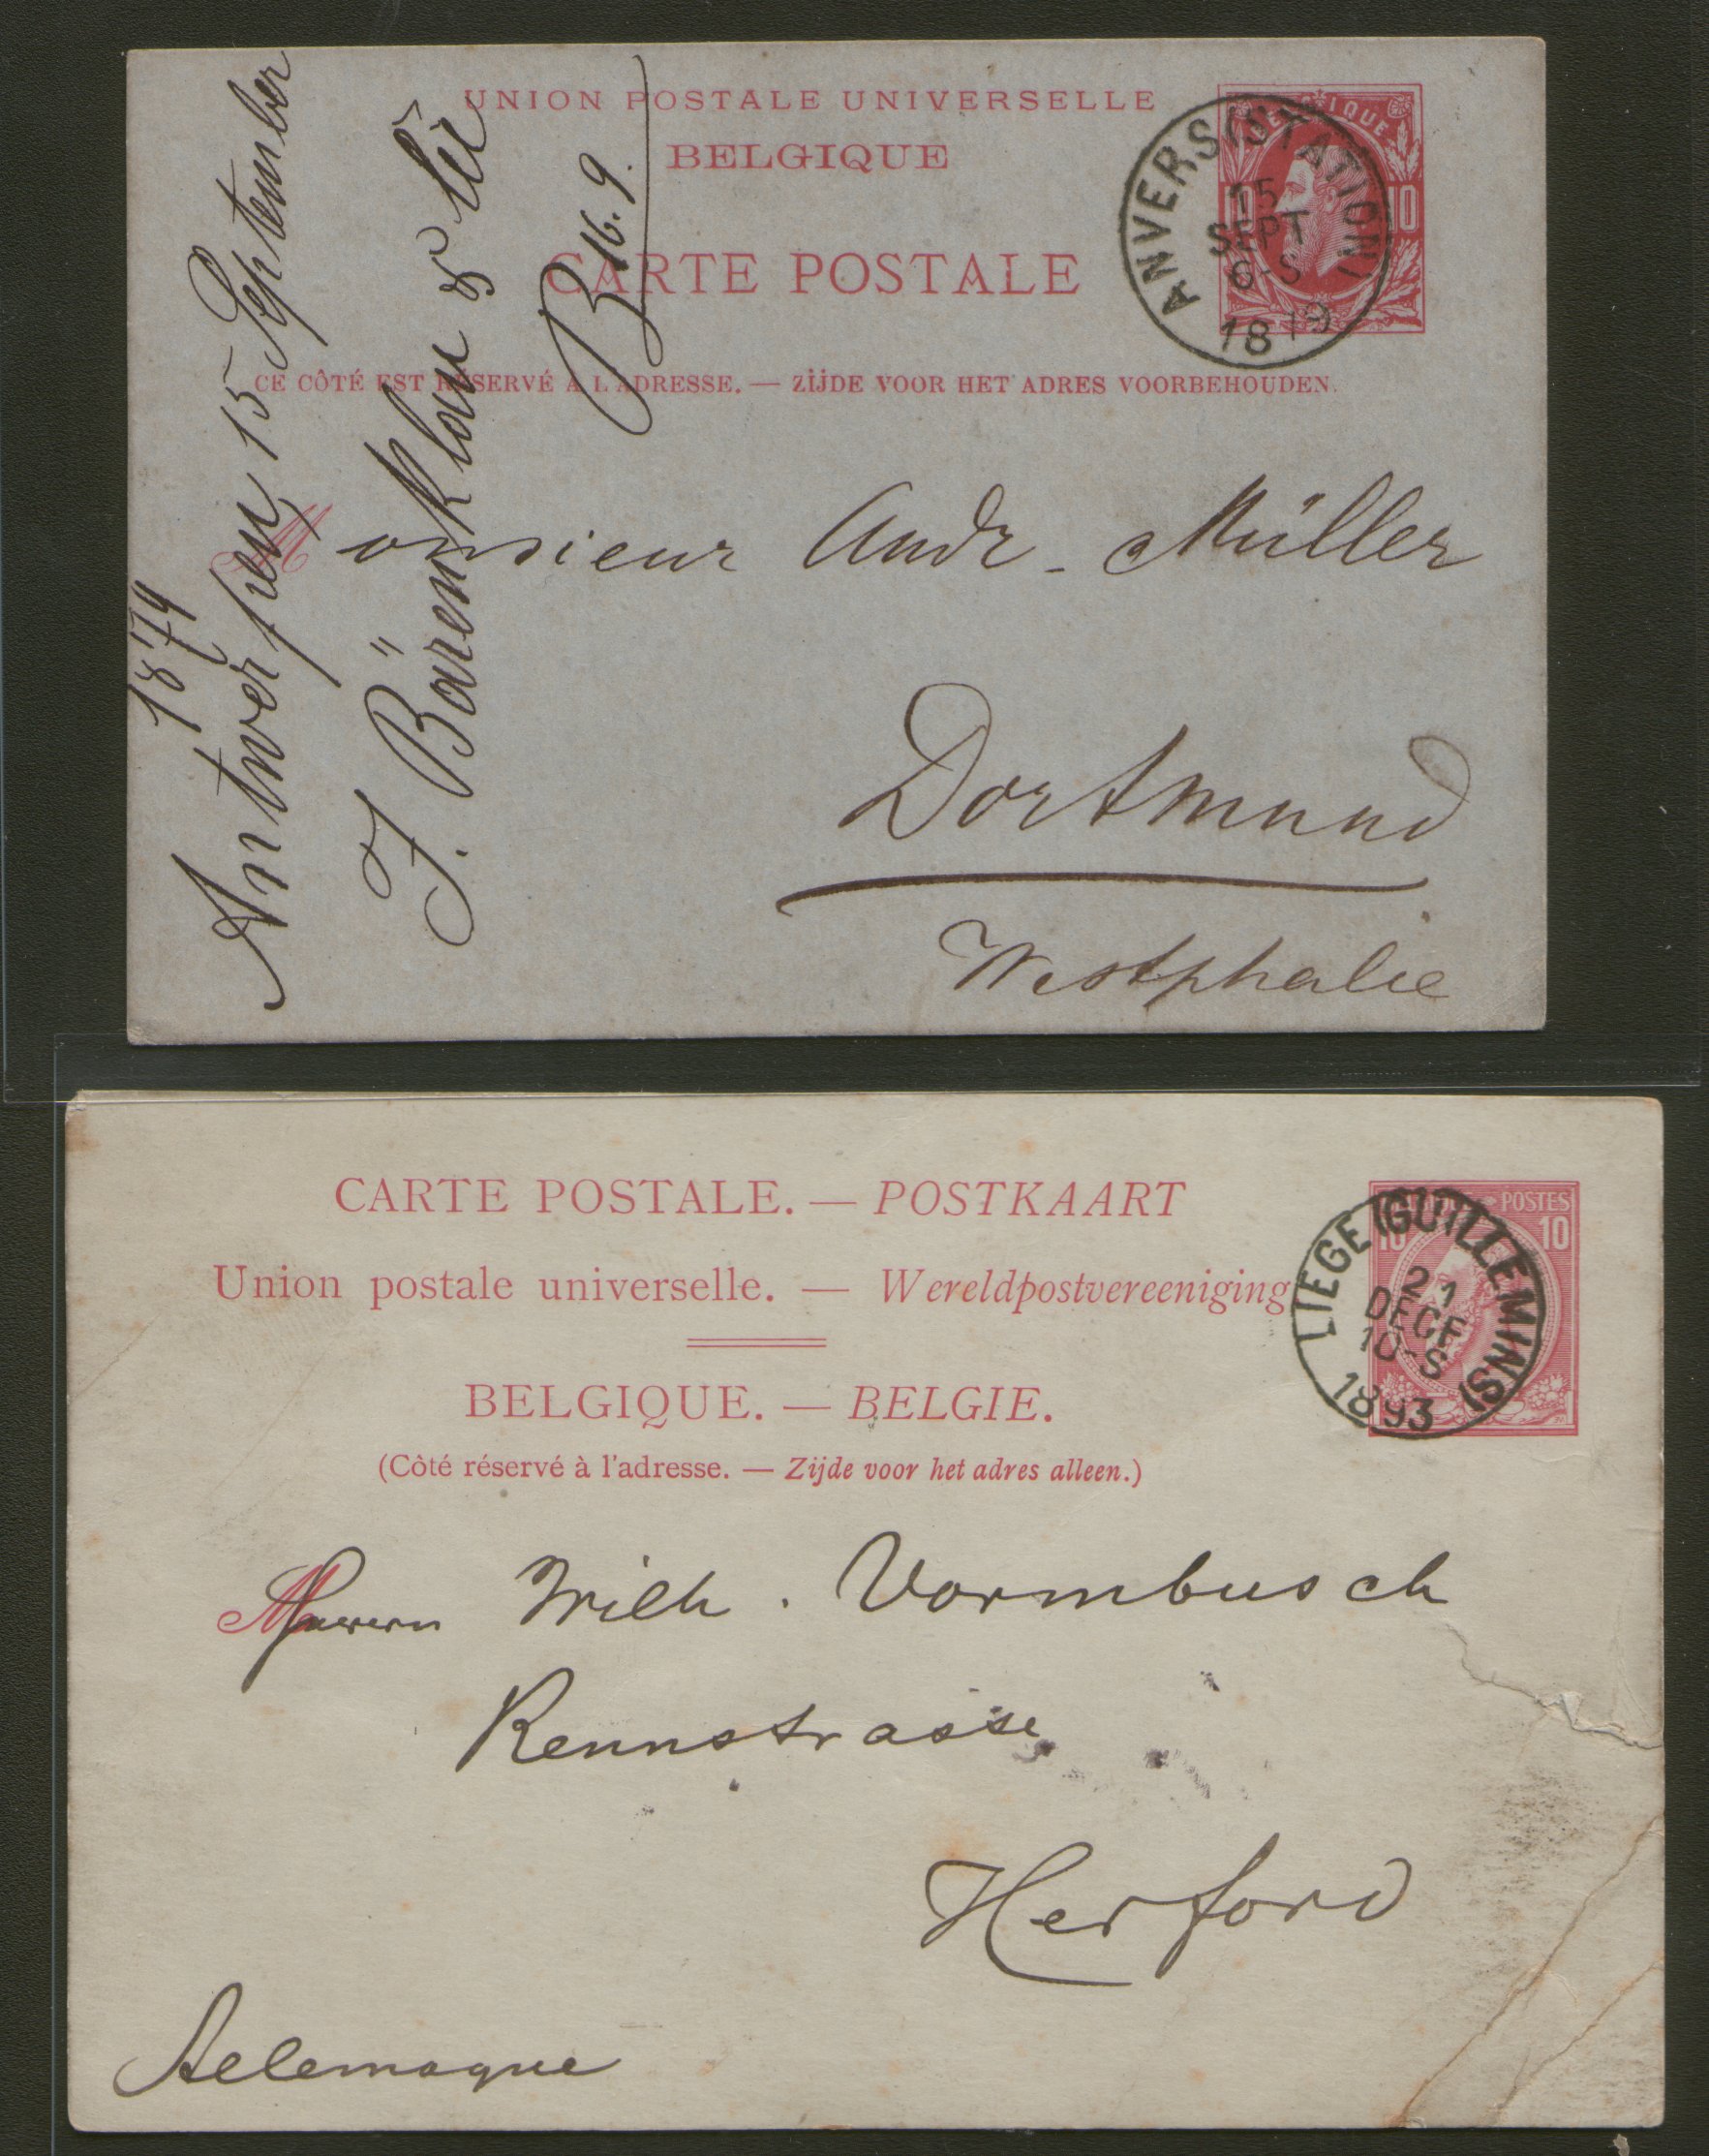 UNION POSTALE UNIVERSELLE
BELGIQUE
CARTE POSTALE
BELGIQUE
10 10
ANVERS (STATION)
15
SEPT
6-S
1879
CE CÔTÉ EST RÉSERVÉ A L'ADRESSE. — ZIJDE VOOR HET ADRES VOORBEHOUDEN.
Monsieur Andr. Müller
Dortmund
Westphalie
1874
Antwerpen, 15 September
J. Bärenklau &
B 16.9.
CARTE POSTALE. — POSTKAART
Union postale universelle. — Wereldpostvereeniging
BELGIQUE. — BELGIE.
(Côté réservé à l'adresse. — Zijde voor het adres alleen.)
POSTES
10 10
LIEGE (GUILLEMINS)
21
DECE
10-S
1893
M
Herrn Wilh. Vormbusch
Rennstrasse
Herford
Allemagne